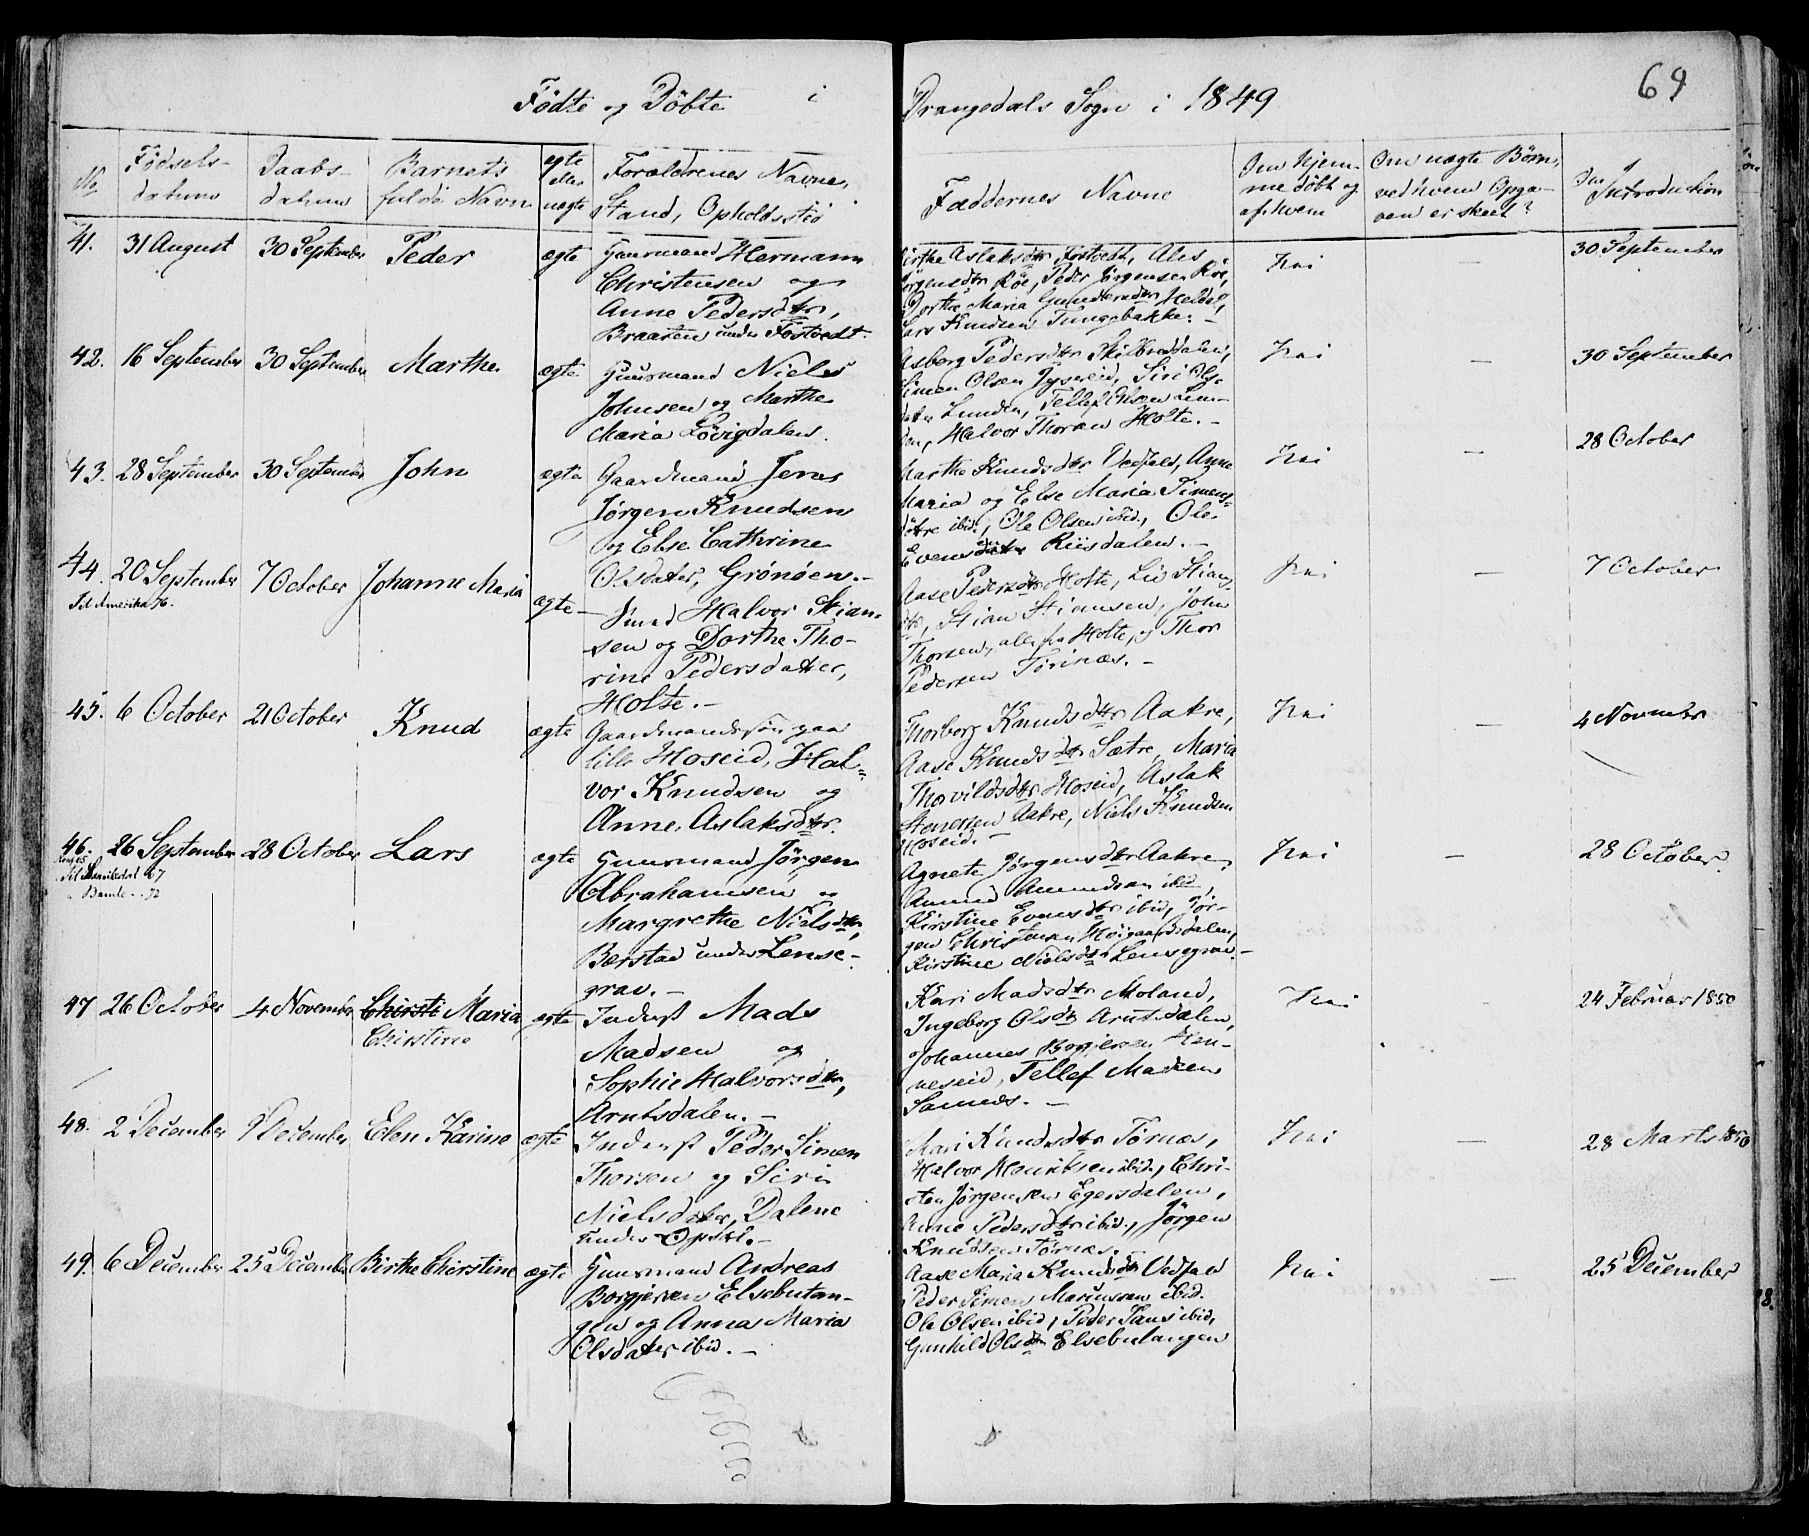 69
Födte og Döbte i Drangedals Sogn i 1849
No
Födsels-
datum
Daabs-
datum
Barnets
fulde Navn
ægte
eller
uægte
Forældrenes Navne,
Stand, Opholdssted
Faddernes Navne
Om hjem-
me döbt og
af hvem
Om uægte Börn,
ved hvem Opga-
ven er skeet?
Introduction
41. 31 August 30 September Peder ægte Huusmand Hermann
Christensen og
Anne Pedersdtr,
Braaten under Fostvedt.
Birthe Aslaksdtr Fostvedt, Ales
Jörgensdtr Röe, Peder Jörgensen Röe,
Dorthe Maria Gundersdtr Heldal,
Lars Knudsen Tungebakke. -
Nei - 30 September
42. 16 September 30 September Marthe ægte Huusmand Niels
Johnsen og Marthe
Maria Lövigdalen.
Asborg Pedersdtr Skilbreddalen,
Simen Olsen Jysereid, Siri Ols-
datter Lunden, Tellef Olsen Lun-
den, Halvor Thoren Holte. -
Nei - 30 September
43. 28 September 30 September John ægte Gaardmand Jens
Jörgen Knudsen
og Else Cathrine
Olsdatter, Grönöen. -
Marthe Knudsdtr Vedfald, Anne
Maria og Else Maria Simens-
döttre ibid., Ole Olsen ibid., Ole
Evensen Riisdalen. -
Nei - 28 October
44. 20 September 7 October Johanne Maria ægte - Smed Halvor Stian-
Til Amerika 76.
sen og Dorthe Tho-
rine Pedersdatter,
Holte. -
Aase Pedersdtr Holte, Liv Stians-
dtr, Stian Stiansen, John
Thorsen, alle fra Holte, og Thor
Pedersen Törinæs. -
Nei - 7 October
45. 6 October 21 October Knud ægte Gaardmandssön paa
lille Hoseid, Hal-
vor Knudsen og
Anne Aslaksdtr.
Thorborg Knudsdtr Aakre,
Aase Knudsdtr Sætre, Maria
Thorvildsdtr Hoseid, Aslak
Stenersen Aakre, Niels Knudsen
Hoseid. -
Nei - 4 November
46. 26 September 28 October Lars ægte Huusmand Jörgen
Bamle - 72
Abrahamsen og
Margrethe Nielsdtr,
Bærstad under Lense-
grav. -
Agnete Jörgensdtr Aakre,
Amund Amundsen ibid,
Kirstine Evensdtr ibid, Jör-
gen Christensen Höigaardsdalen,
Kirstine Nielsdtr Lensegrav. -
Nei - 28 October.
47 26 October 4 November Chirsti Maria
Chirstine
ægte Inderst Mads
Madsen og
Sophie Halvorsdtr,
Arntsdalen. -
Kari Madsdtr Moland,
Ingeborg Olsdtr Arntsdalen,
Johannes Borgiersen Hen-
neseid, Tellef Madsen
Sannæs. -
Nei 24 Februar 1850
48. 2 December 9 December Elen Karine ægte Inderst Peder Simen
Thorsen og Siri
Nielsdatter, Dalene
under Opstl. -
Mari Knudsdtr Törnæs,
Halvor Henriksen ibid, Chri-
sten Jörgensen Egersdalen,
Anne Pedersdtr ibid., Jörgen
Knudsen Törnæs.
Nei - 28 Marts 1850
49. 6 December 25 December Birthe Chirstine ægte Huusmand Andreas
Borgjersen Elsebutan-
gen og Anna Maria
Olsdatter ibid. -
Aase Maria Knudsdtr Vedfald
Peder Simen Mariussen ibid.
Ole Olsen ibid, Peder Hans ibid,
Gunhild Olsdtr Elsebutangen
Nei - 25 December